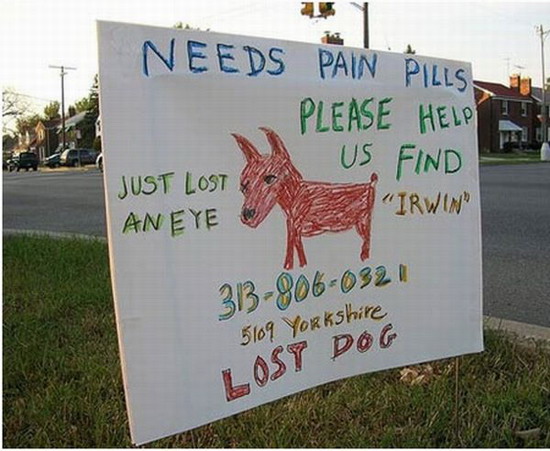 NEEDS PAIN PILLS
PLEASE HELP
US FIND
"IRWIN"
JUST LOST
AN EYE
313-806-0321
5109 YORKSHIRE
LOST DOG